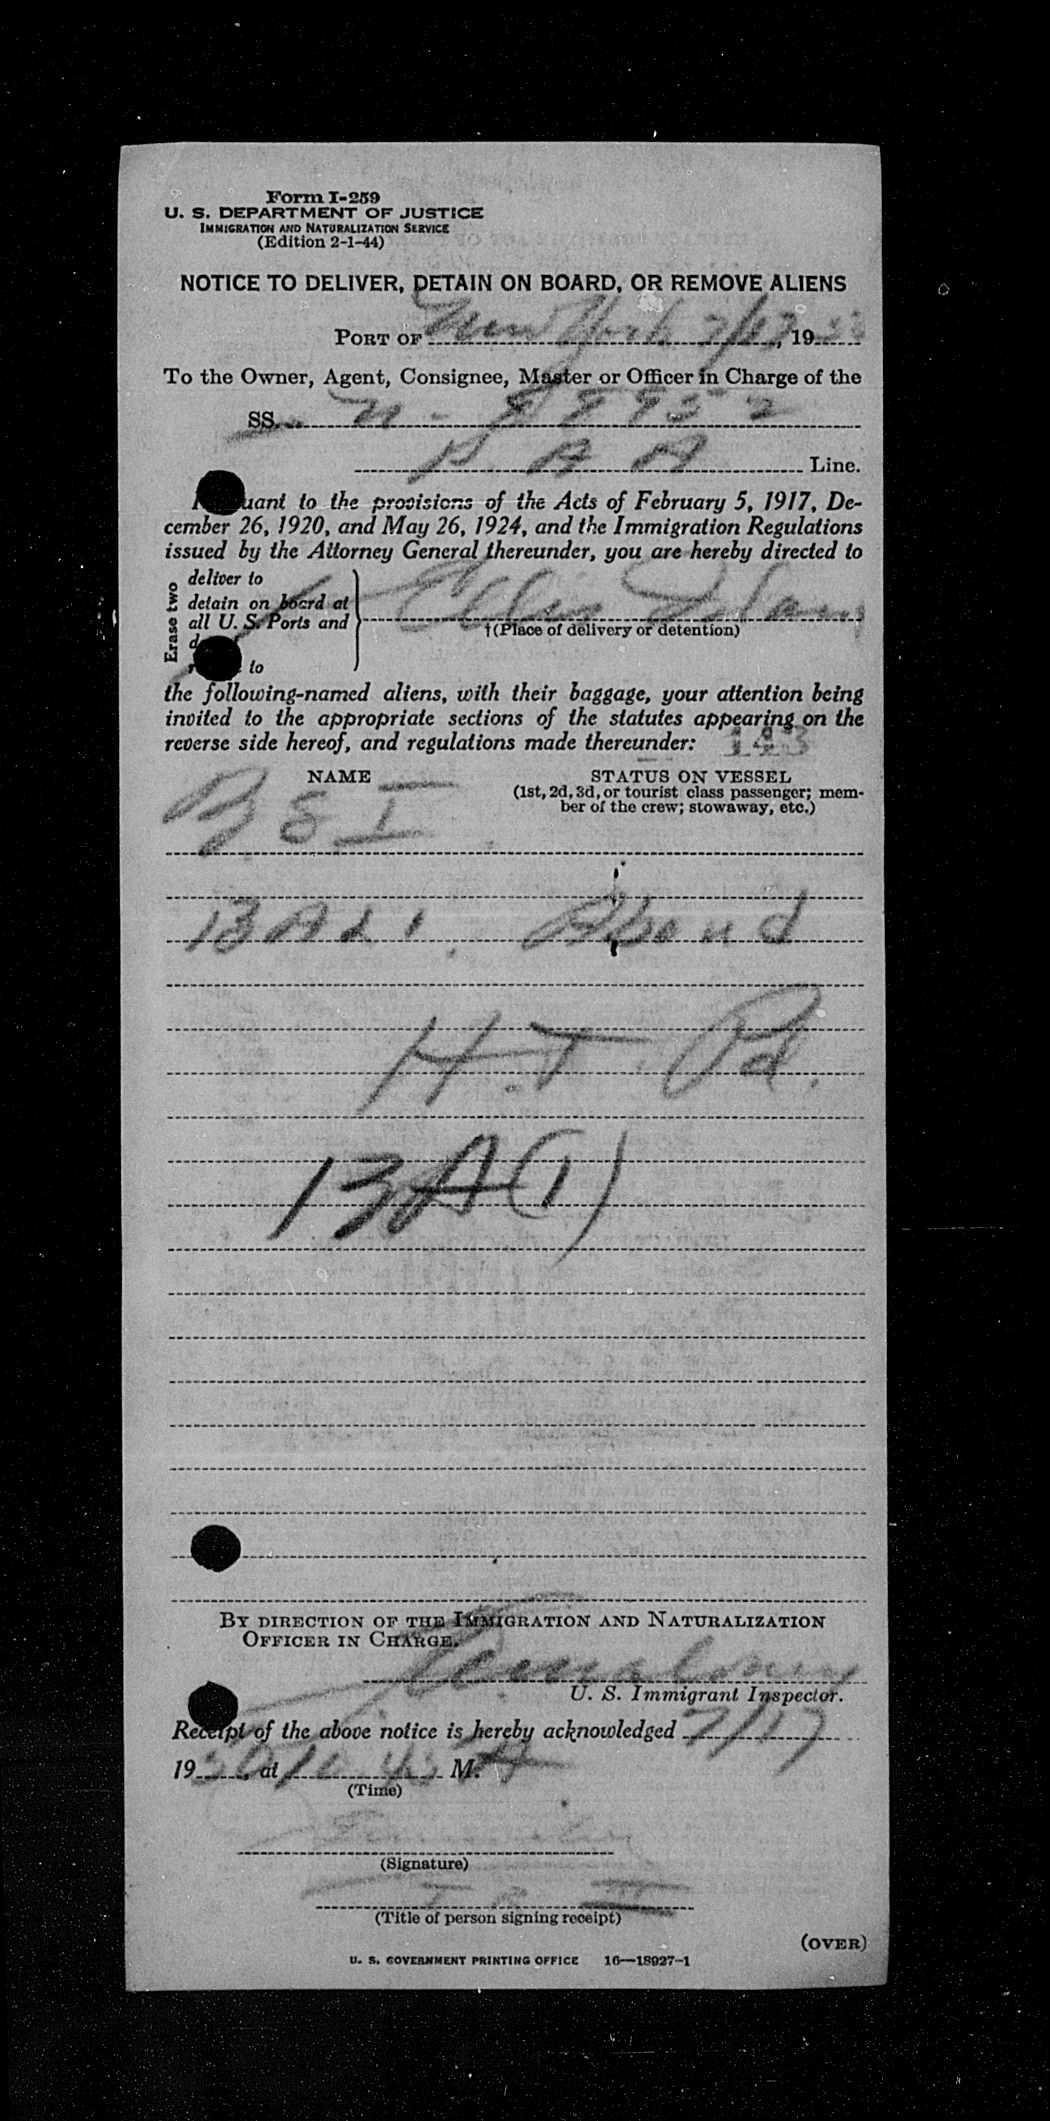 Form I-259
U. S. DEPARTMENT OF JUSTICE
IMMIGRATION AND NATURALIZATION SERVICE
(Edition 2-1-44)
NOTICE TO DELIVER, DETAIN ON BOARD, OR REMOVE ALIENS
PORT OF New York 7/17, 19
To the Owner, Agent, Consignee, Master or Officer in Charge of the
SS. N-88952
P A A Line.
uant to the provisions of the Acts of February 5, 1917, De-
cember 26, 1920, and May 26, 1924, and the Immigration Regulations
issued by the Attorney General thereunder, you are hereby directed to
Erase two
deliver to
detain on board at
all U. S. Ports and
to
Ellis Island
†(Place of delivery or detention)
the following-named aliens, with their baggage, your attention being
invited to the appropriate sections of the statutes appearing on the
reverse side hereof, and regulations made thereunder: 143
NAME STATUS ON VESSEL
(1st, 2d, 3d, or tourist class passenger; mem-
ber of the crew; stowaway, etc.)
B S I
13A
H.T. Pd.
13A(1)
BY DIRECTION OF THE IMMIGRATION AND NATURALIZATION
OFFICER IN CHARGE.
U. S. Immigrant Inspector.
Receipt of the above notice is hereby acknowledged 7/17
19 50, at M.
(Time)
(Signature)
(Title of person signing receipt)
(OVER)
U. S. GOVERNMENT PRINTING OFFICE 16—18927-1